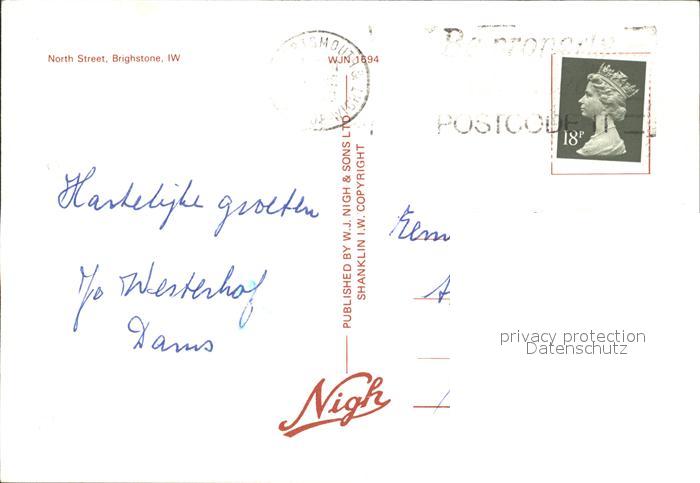 North Street, Brighstone, IW
WJN 1694
Be properly
POSTCODE IT
18P
PUBLISHED BY W.J. NIGH & SONS LTD
SHANKLIN I.W. COPYRIGHT
Hartelijke groeten
Jo Westerhof
Dams
Nigh
privacy protection
Datenschutz